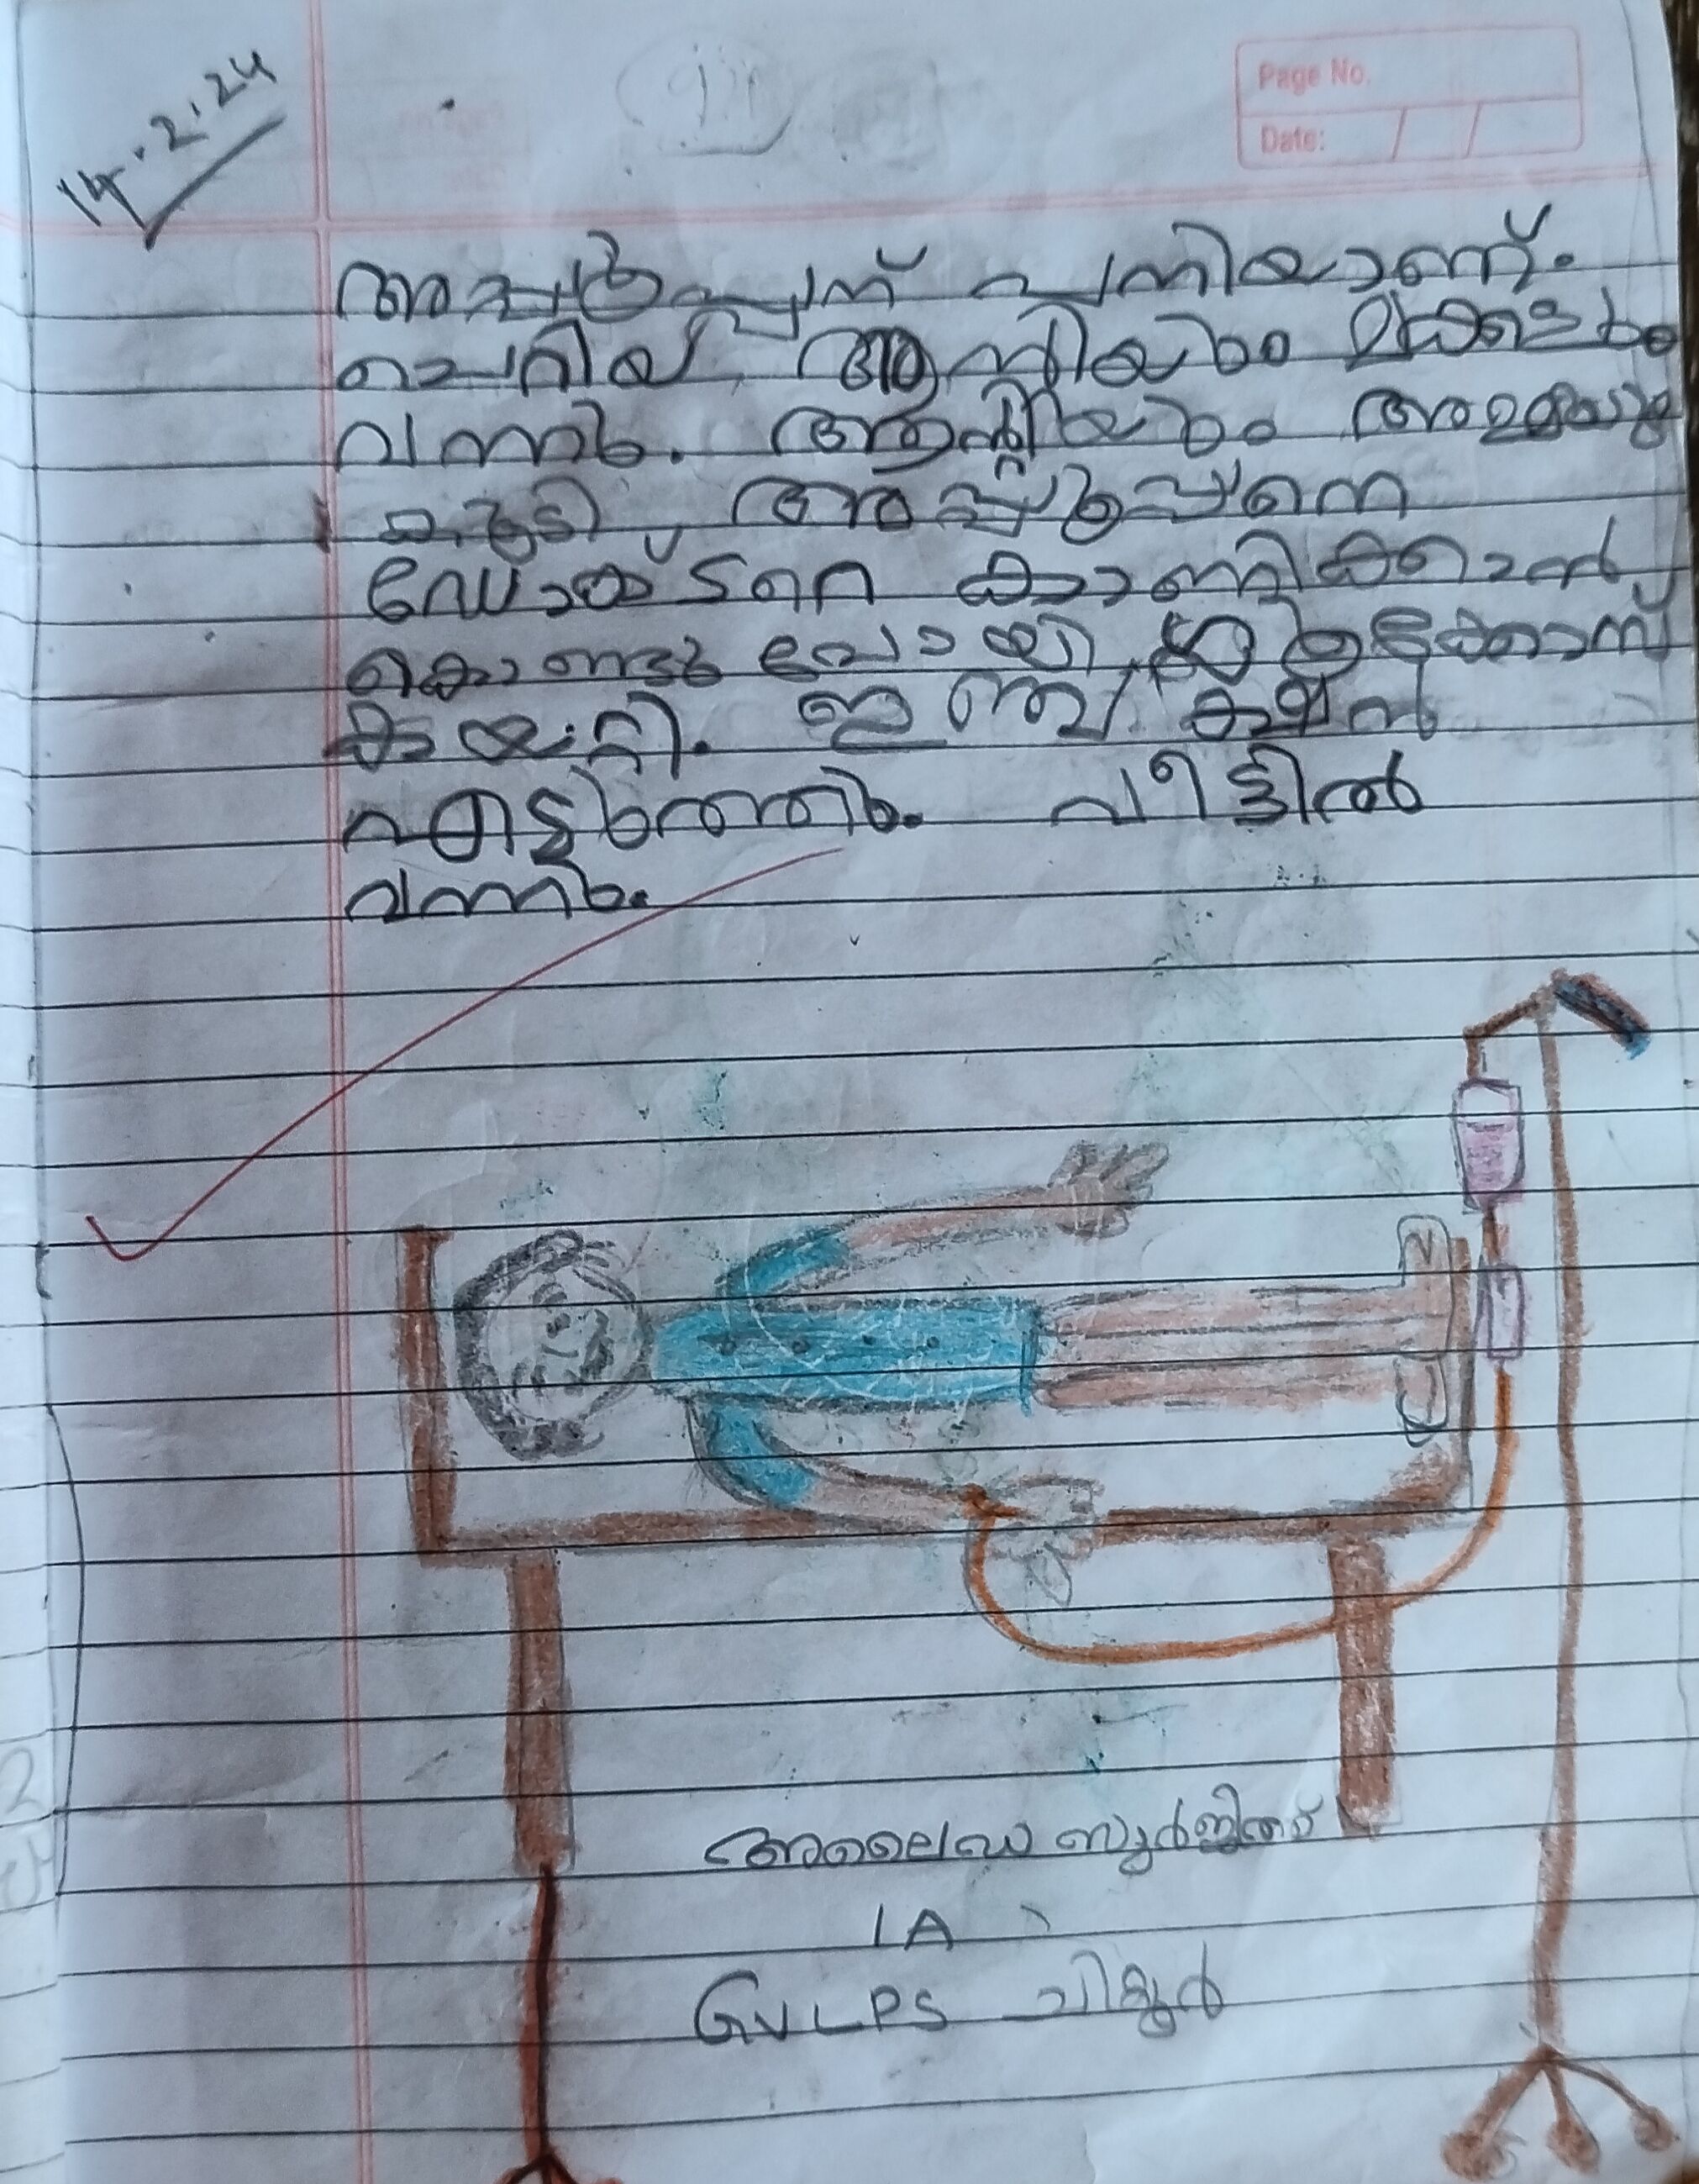 14.2.24
Page No.
Date:
അപ്പൂപ്പന് പനിയാണ്.
ചെറിയ ആന്റിയും മക്കളും
വന്നു. ആന്റിയും അമ്മയും
കൂടി അപ്പൂപ്പനെ
ഡോക്ടറെ കാണിക്കാൻ
കൊണ്ടു പോയി. ഗ്ലൂക്കോസ്
കയറ്റി. ഇഞ്ചക്ഷൻ
എടുത്തു. വീട്ടിൽ
വന്നു.
അലൈഡ സുർജിത്ത്
1A
GVLPS ചിറ്റൂർ